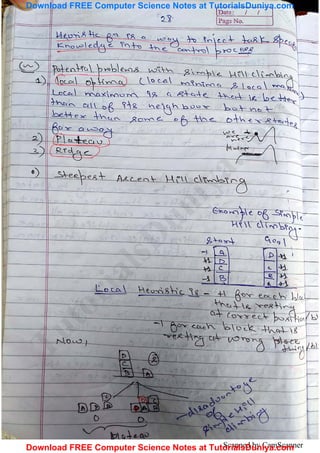 Download FREE Computer Science Notes at TutorialsDuniya.com
Date: / /
Page No.
28
Heuristic fn is a way to inject task specific
Knowledge into the control process
Potential problems with simple Hill climbing
1) local optima (local minima & local maxima)
Local maximum is a state that is better
than all of its neighbour but not
better than some of the other states
far away
2) Plateau
3) Ridge
Steepest Ascent Hill climbing
Example of Simple
Hill climbing
Start Goal
-1 A D +1
+1 D C +1
+1 C B +1
-1 B A +1
Local Heuristic is - +1 for each block
that is resting
at correct position
-1 for each block that is
resting at wrong place
Now,
D
C
B A
2
0 0
Plateau
disadvantage
of
simple Hill
climbing
Scanned by CamScanner
Download FREE Computer Science Notes at TutorialsDuniya.com